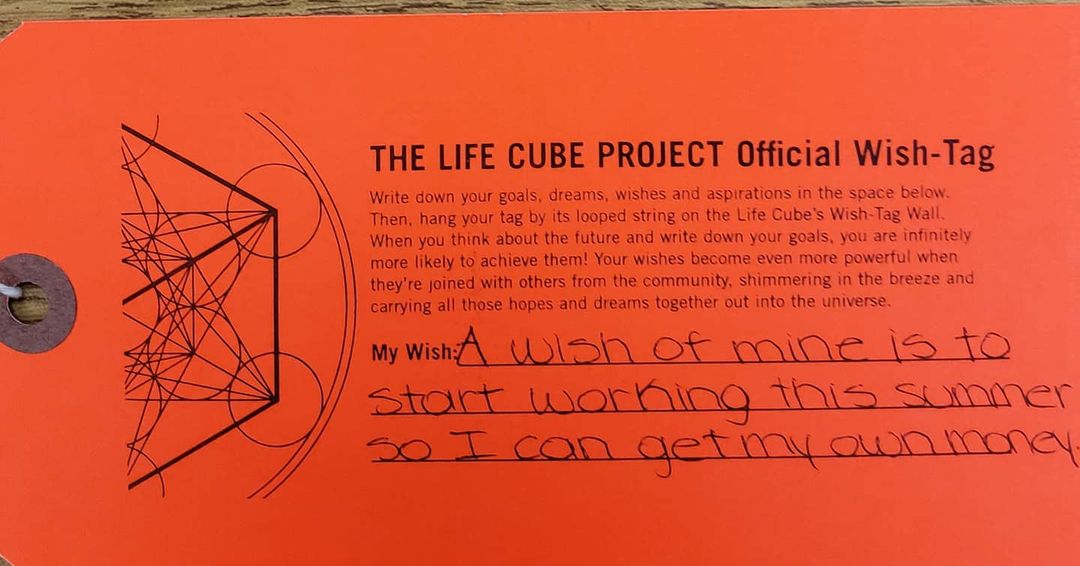 THE LIFE CUBE PROJECT Official Wish-Tag
Write down your goals, dreams, wishes and aspirations in the space below.
Then, hang your tag by its looped string on the Life Cube's Wish-Tag Wall.
When you think about the future and write down your goals, you are infinitely
more likely to achieve them! Your wishes become even more powerful when
they're joined with others from the community, shimmering in the breeze and
carrying all those hopes and dreams together out into the universe.
My Wish: A wish of mine is to
start working this summer
so I can get my own money.